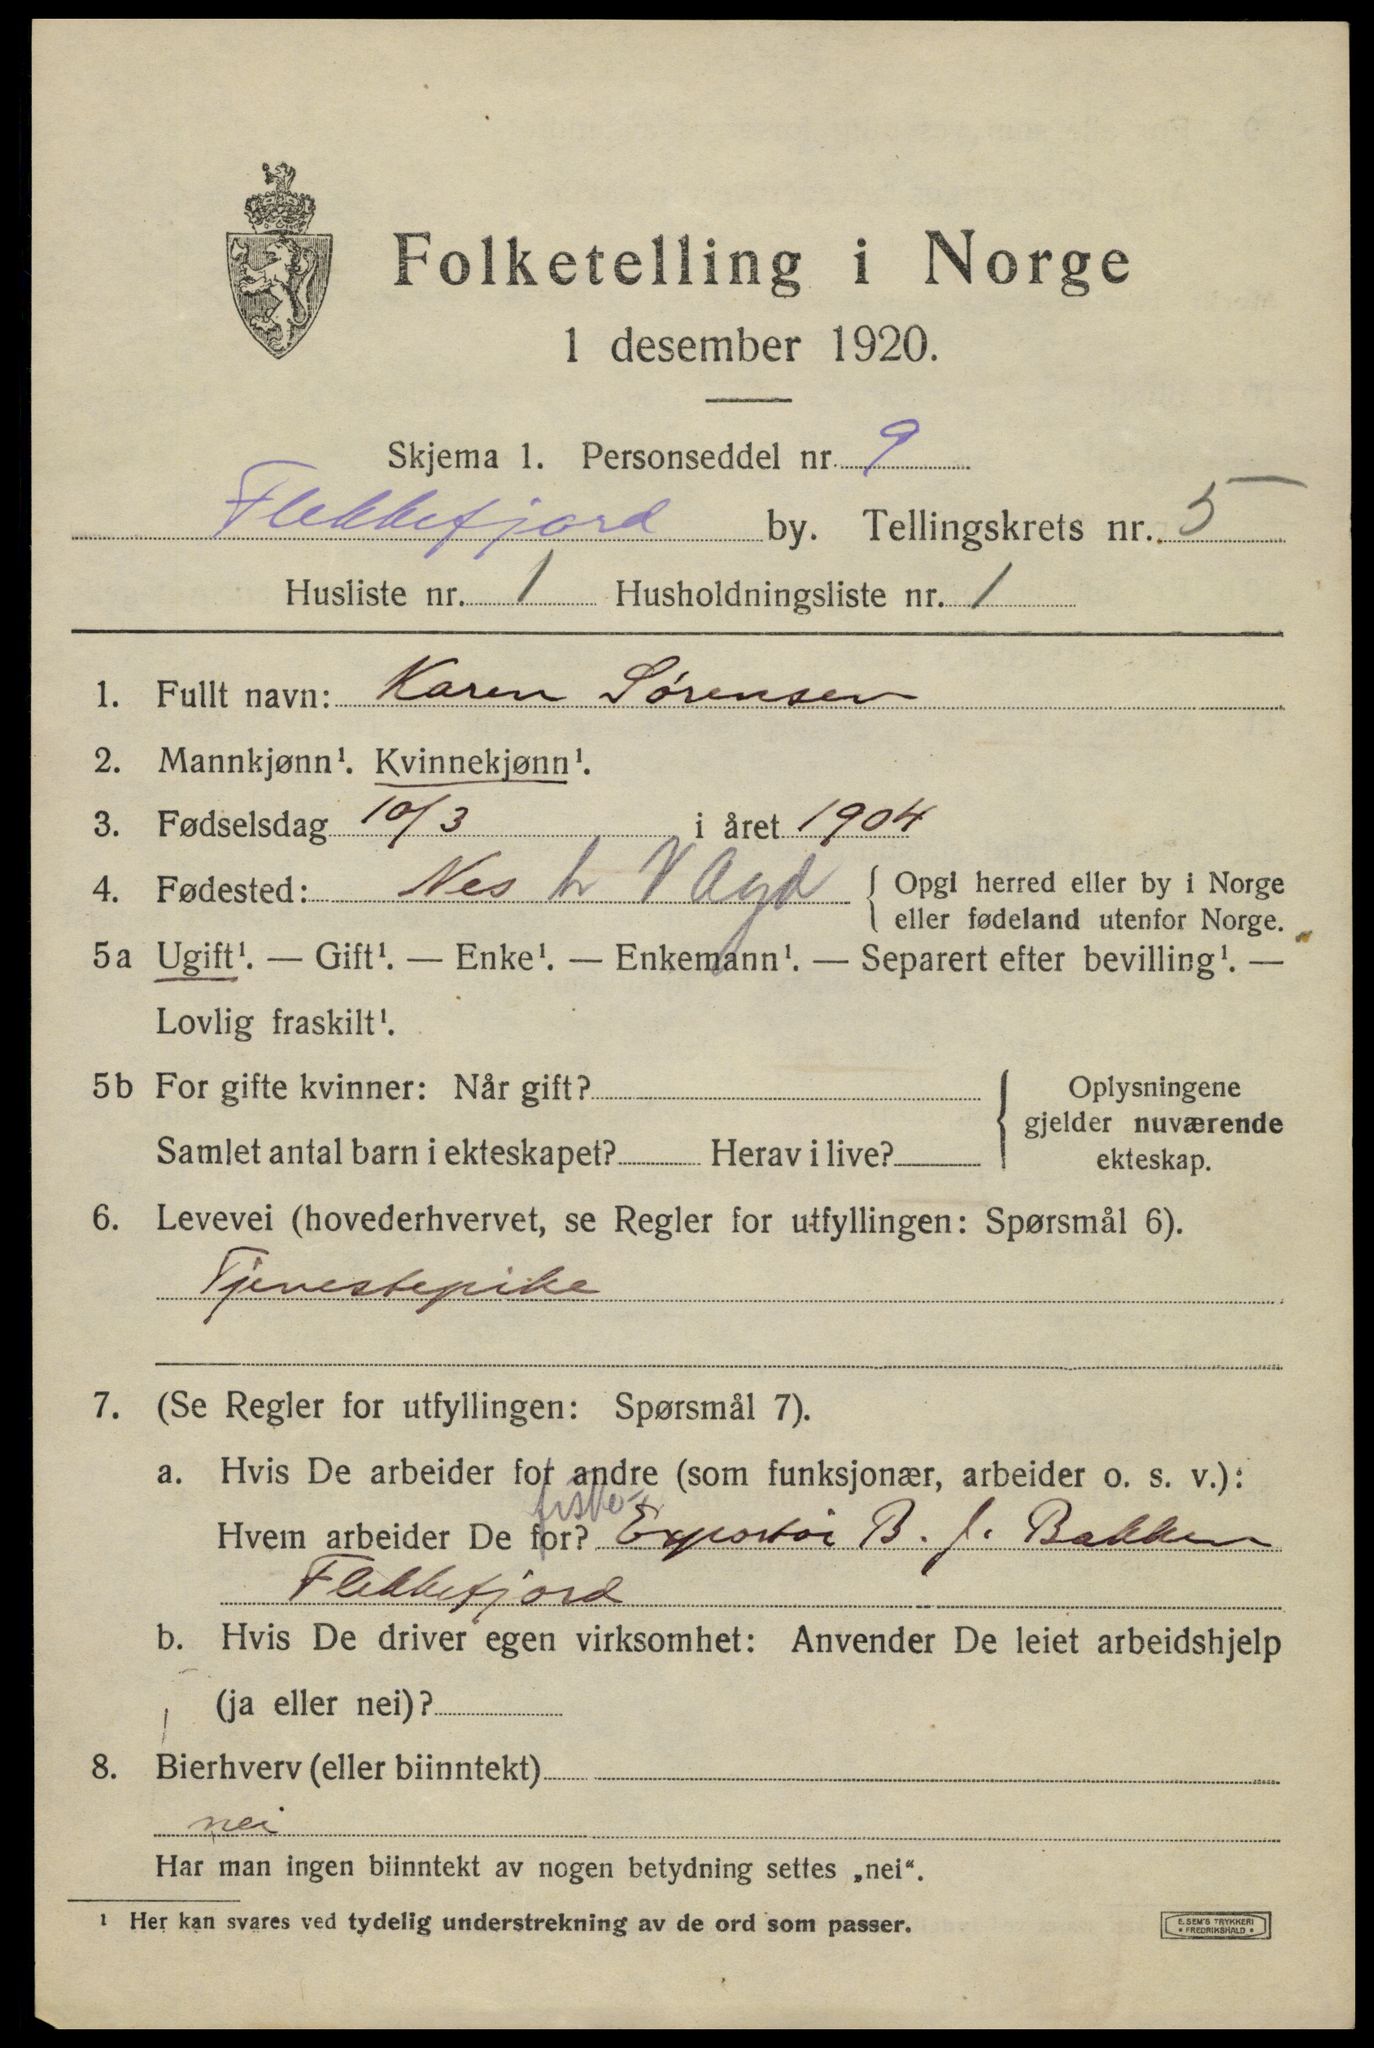 Folketelling i Norge
1 desember 1920.
Skjema 1. Personseddel nr. 9
Flekkefjord by. Tellingskrets nr. 5
Husliste nr. 1 Husholdningsliste nr. 1
1. Fullt navn: Karen Sørensen
2. Mannkjønn¹. Kvinnekjønn¹.
3. Fødselsdag 10/3 i året 1904
4. Fødested: Nes h V Agd { Opgi herred eller by i Norge
eller fødeland utenfor Norge.
5a Ugift¹. — Gift¹. — Enke¹. — Enkemann¹. — Separert efter bevilling¹. —
Lovlig fraskilt¹.
5b For gifte kvinner: Når gift? { Oplysningene
gjelder nuværende
Samlet antal barn i ekteskapet? Herav i live? ekteskap.
6. Levevei (hovederhvervet, se Regler for utfyllingen: Spørsmål 6).
Tjenestepike
7. (Se Regler for utfyllingen: Spørsmål 7).
a. Hvis De arbeider for andre (som funksjonær, arbeider o. s. v.):
fiske-
Hvem arbeider De for? Exportør B. J. Bakken
Flekkefjord
b. Hvis De driver egen virksomhet: Anvender De leiet arbeidshjelp
(ja eller nei)?
8. Bierhverv (eller biinntekt)
nei
Har man ingen biinntekt av nogen betydning settes „nei“.
¹ Her kan svares ved tydelig understrekning av de ord som passer.
E. SEM'S TRYKKERI
• FREDRIKSHALD •